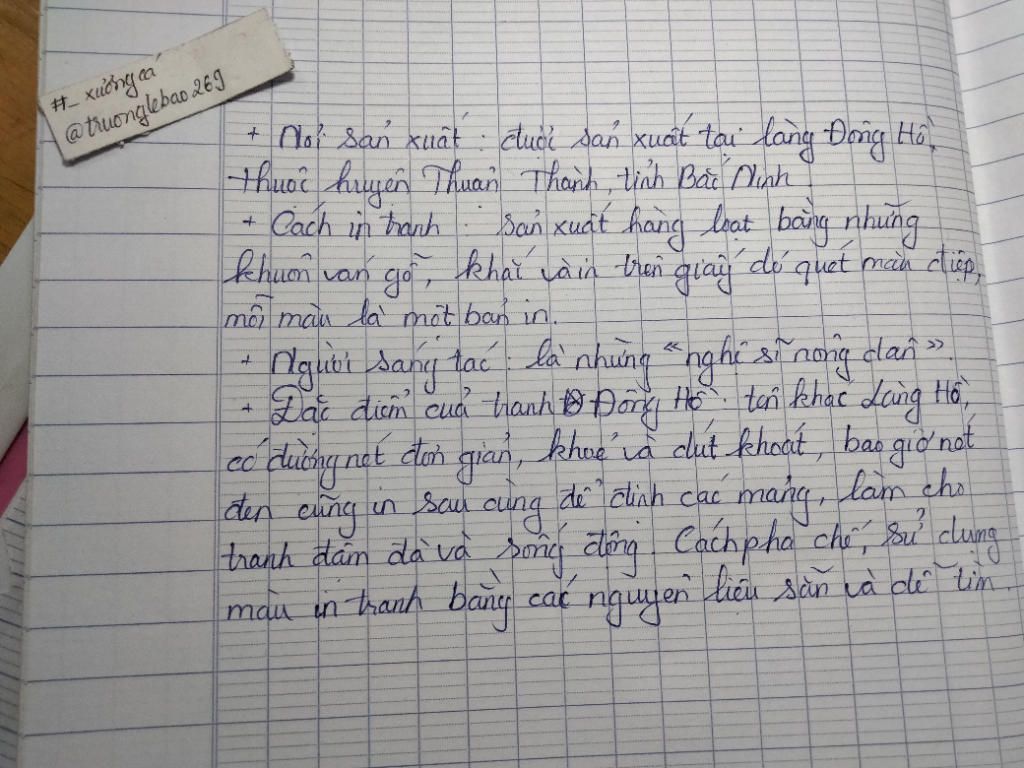 #_xưởng cá
@truonglebao269
+ Nơi sản xuất : được sản xuất tại làng Đông Hồ,
thuộc huyện Thuận Thành, tỉnh Bắc Ninh
+ Cách in tranh : sản xuất hàng loạt bằng những
khuôn ván gỗ, khắc và in trên giấy dó quét màu điệp,
mỗi màu là một bản in.
+ Người sáng tác : là những "nghệ sĩ nông dân".
+ Đặc điểm của tranh Đông Hồ : tên khác Làng Hồ,
có đường nét đơn giản, khoẻ và dứt khoát, bao giờ nét
đen cũng in sau cùng để định các mảng, làm cho
tranh đậm đà và sống động. Cách pha chế, sử dụng
màu in tranh bằng các nguyên liệu sẵn và dễ tìm.